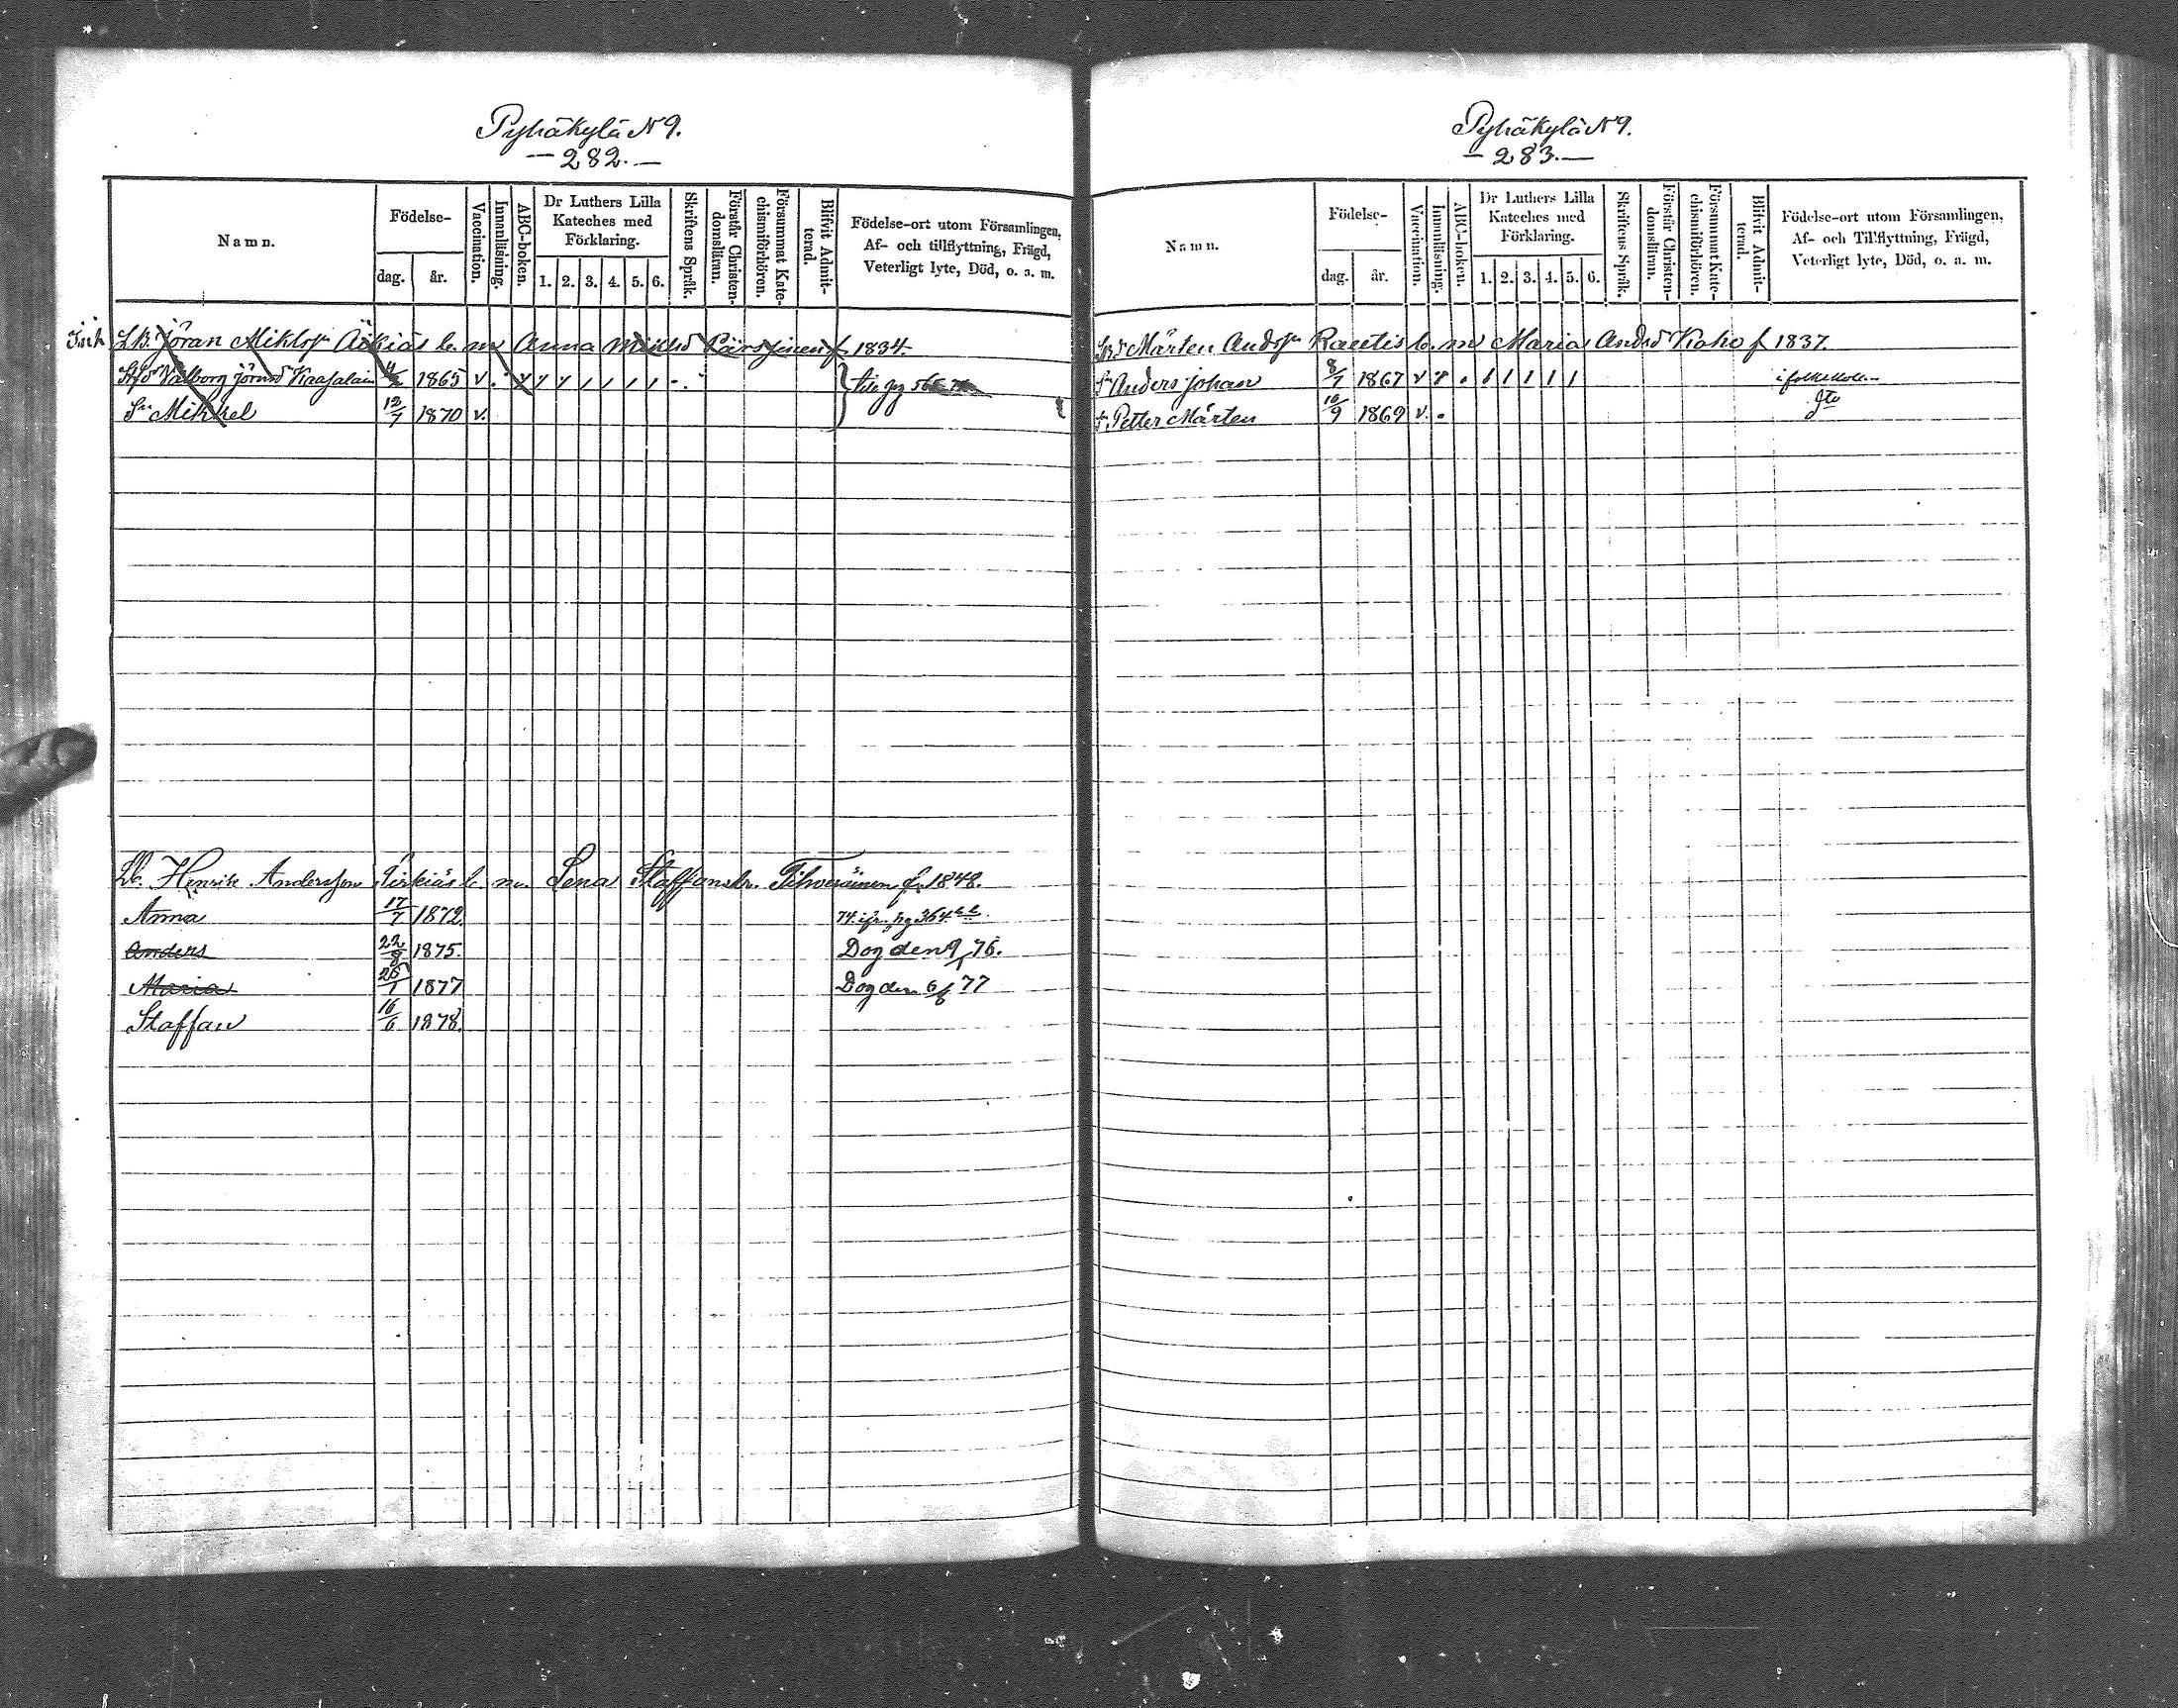 Pyhäkylä N 9.
— 282. —
Namn.
Födelse-
dag.
år.
Vaccination.
Innanläsning.
ABC-boken.
Dr Luthers Lilla
Kateches med
Förklaring.
1. 2. 3. 4. 5. 6.
Skriftens Språk.
Förstår Christen-
domsläran.
Försummat Kate-
chismiförhören.
Blifvit Admit-
terad.
Födelse-ort utom Församlingen,
Af- och tillflyttning, Frägd,
Veterligt lyte, Död, o. s. m.
Jöran Äikiäs b. m. Anna f. 1834.
Valborg 1865 v
Sn Mikkel 12/7 1870 v.
Lb. Henrik Andersson b. m. Lena Staffansdr. f. 1848.
Anna 17/7 1872
Anders 22/8 1875. Dog den 9/1 76.
Maria 25/1 1877 Dog den 6/6 77
Staffan 16/6 1878.
Pyhäkylä N 9.
— 283. —
Namn.
Födelse-
dag.
år.
Vaccination.
Innanläsning.
ABC-boken.
Dr Luthers Lilla
Kateches med
Förklaring.
1. 2. 3. 4. 5. 6.
Skriftens Språk.
Förstår Christen-
domsläran.
Försummat Kate-
chismiförhören.
Blifvit Admit-
terad.
Födelse-ort utom Församlingen,
Af- och Tillflyttning, Frägd,
Veterligt lyte, Död, o. s. m.
Mårten Rautis b. m. Maria Kaho f 1837.
Anders Johan 8/7 1867 v
Petter Mårten 16/9 1869 v.